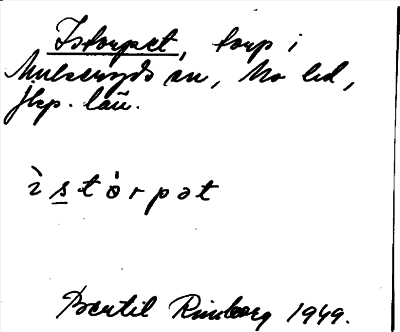 Istorpet, torp i
Mulseryds sn, Mo hd,
Jkp. län.
ì s t ò r p ə t
Bertil Rimborg 1949.